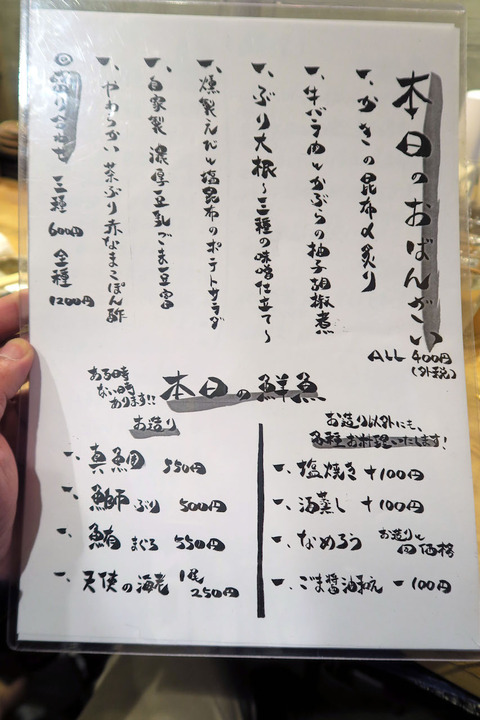 本日のおばんざい
ALL 400円
(外税)
一、かきの昆布〆炙り
一、牛バラ肉とかぶらの柚子胡椒煮
一、ぶり大根〜三種の味噌仕立て〜
一、燻製えびと塩昆布のポテトサラダ
一、自家製 濃厚豆乳ごま豆富
一、やわらかい 茶ぶり赤なまこぽん酢
◎盛り合わせ 三種 600円 全種 1200円
本日の鮮魚
ある日時
ない時
あります!!
お造り
一、真鯛 550円
一、鰤 ぶり 500円
一、鮪 まぐろ 550円
一、天使の海老 1尾 250円
お造り以外にも、
各種お料理いたします!
一、塩焼き +100円
一、酒蒸し +100円
一、なめろう お造りと同価格
一、ごま醤油和え -100円